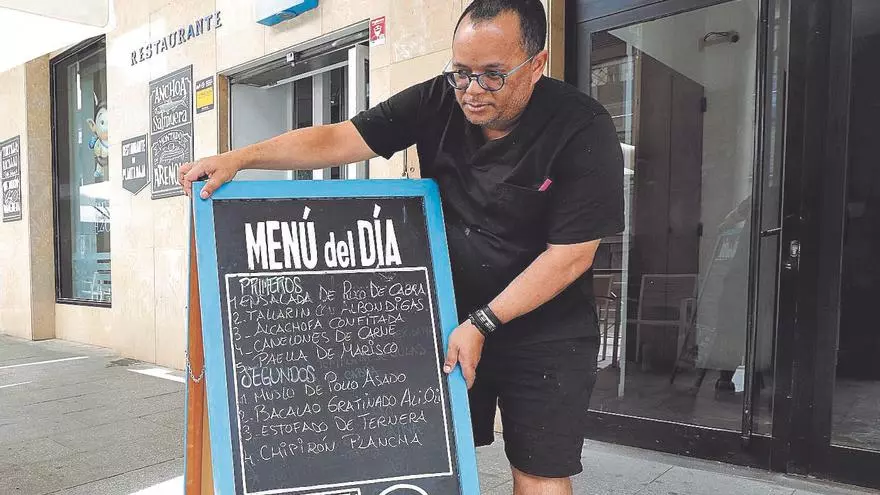 RESTAURANTE
ANCHOA
Salmuera
MONTADO
ARENQUE
RESTAURANTE
MENÚ del DÍA
PRIMEROS
1. ENSALADA DE RULO DE CABRA
2. TALLARIN CON ALBONDIGAS
3. ALCACHOFA CONFITADA
4. CANELONES DE CARNE
5. PAELLA DE MARISCO
SEGUNDOS
1. MUSLO DE POLLO ASADO
2. BACALAO GRATINADO ALI.OLI
3. ESTOFADO DE TERNERA
4. CHIPIRÓN PLANCHA